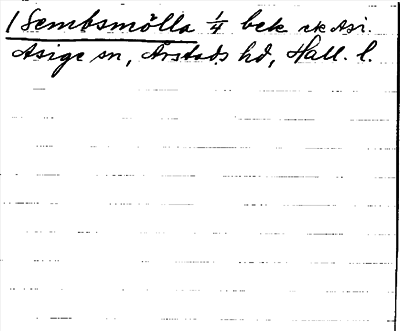 1 Sembsmölla 1/4 bek sk Asi.
Asige sn, Årstads hd, Hall. l.